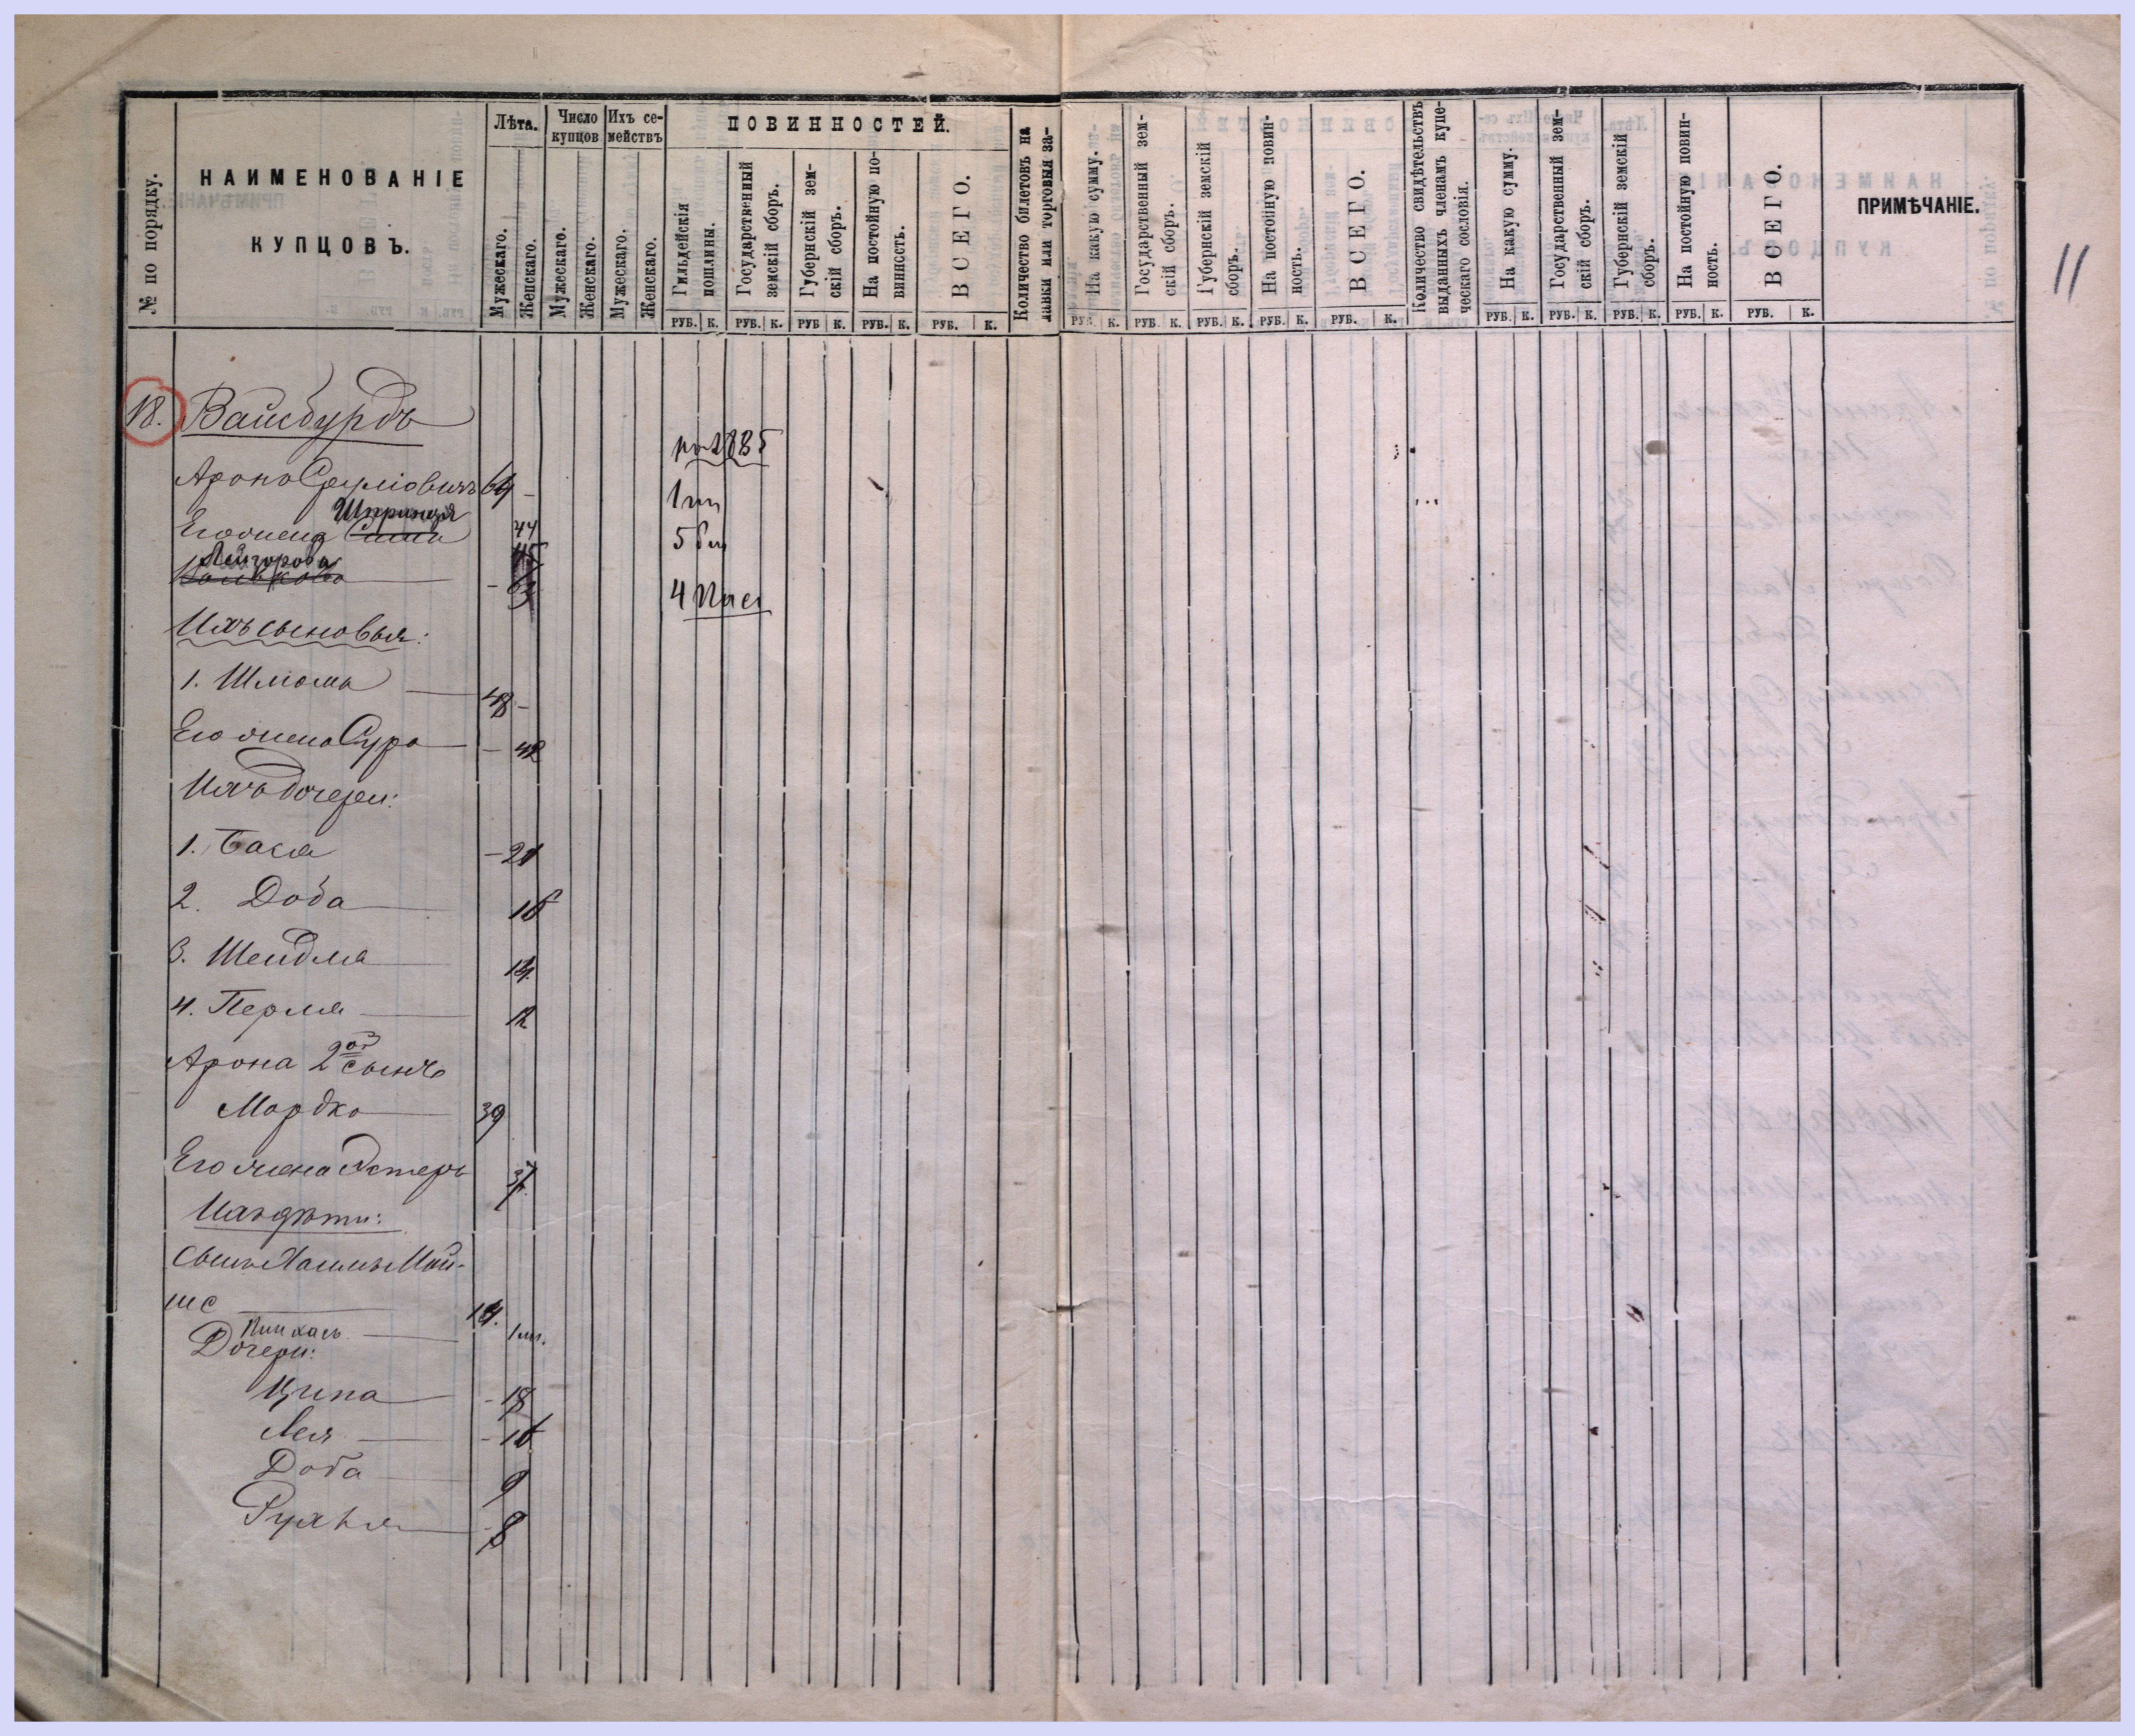 № по порядку.
НАИМЕНОВАНІЕ
КУПЦОВЪ.
Лѣта.
Мужескаго.
Женскаго.
Число купцов
Мужескаго.
Женскаго.
Ихъ се-
мействъ
Мужескаго.
Женскаго.
ПОВИННОСТЕЙ.
Гильдейскія
пошлины.
Государственный
земскій сборъ.
Губернскій зем-
скій сборъ.
На постойную по-
винность.
ВСЕГО.
Количество билетовъ на
лавки или торговыя за-
На какую сумму.
Государственный зем-
скій сборъ.
Губернскій земскій
сборъ.
На постойную повин-
ность.
ВСЕГО.
Количество свидѣтельствъ
выданныхъ членамъ купе-
ческаго сословія.
На какую сумму.
Государственный зем-
скій сборъ.
Губернскій земскій
сборъ.
На постойную повин-
ность.
ВСЕГО.
ПРИМѢЧАНІЕ.
РУБ. К. РУБ. К. РУБ К. РУБ. К. РУБ. К. РУБ. К. РУБ. К. РУБ. К. РУБ. К. РУБ. К. РУБ. К. РУБ. К. РУБ. К. РУБ. К. РУБ. К.
11
18. Вайсбурдъ
1885
Аронъ Сруліовичъ 64 -
Шпринця
Его жена 44
5 бил
Лейзорова
4
Ихъ сыновья:
1. Шліома — 48 -
Его жена Сура — 42
Ихъ дочери:
1. Бася — 21
2. Доба — 16
3. Шейдля — 14
4. Перля — 12
Арона 2ой сынъ
Мордко — 39
Его жена Эстеръ 37.
Ихъ дѣти:
Сынъ Хаимъ Мой-
ше — 14.
Пинхасъ —
Дочери:
Ципа — 18
Лея — 16
Доба — 9
Рухля — 8